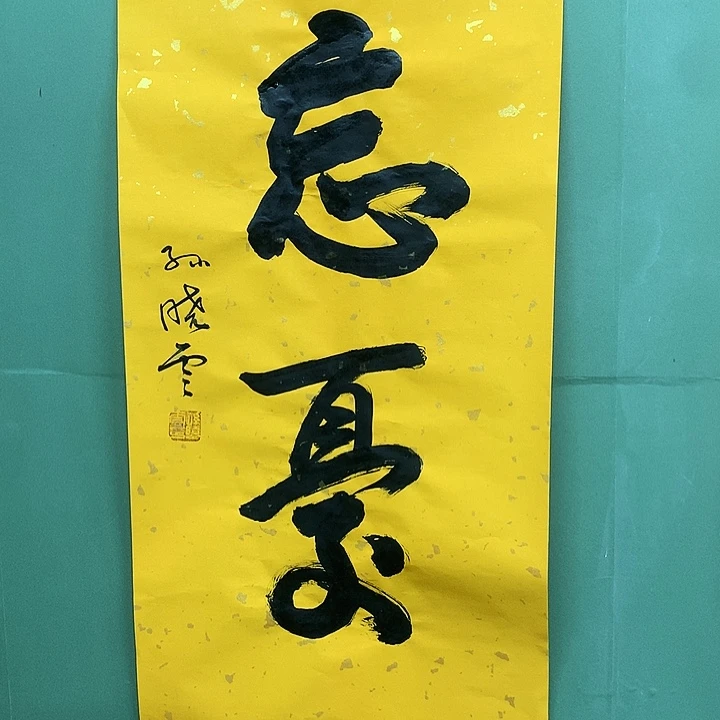 忘憂
孙晓云